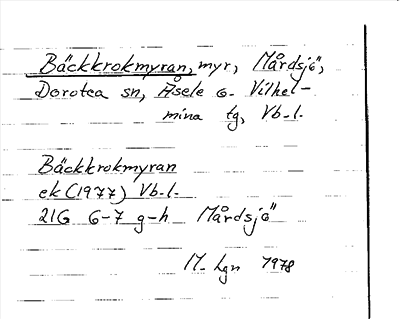 Bäckkrokmyran, myr, Mårdsjö,
Dorotea sn, Åsele o. Vilhel-
mina tg, Vb.l.
Bäckkrokmyran
ek (1977) Vb.l.
21G 6-7 g-h Mårdsjö
M. Lgn 1978